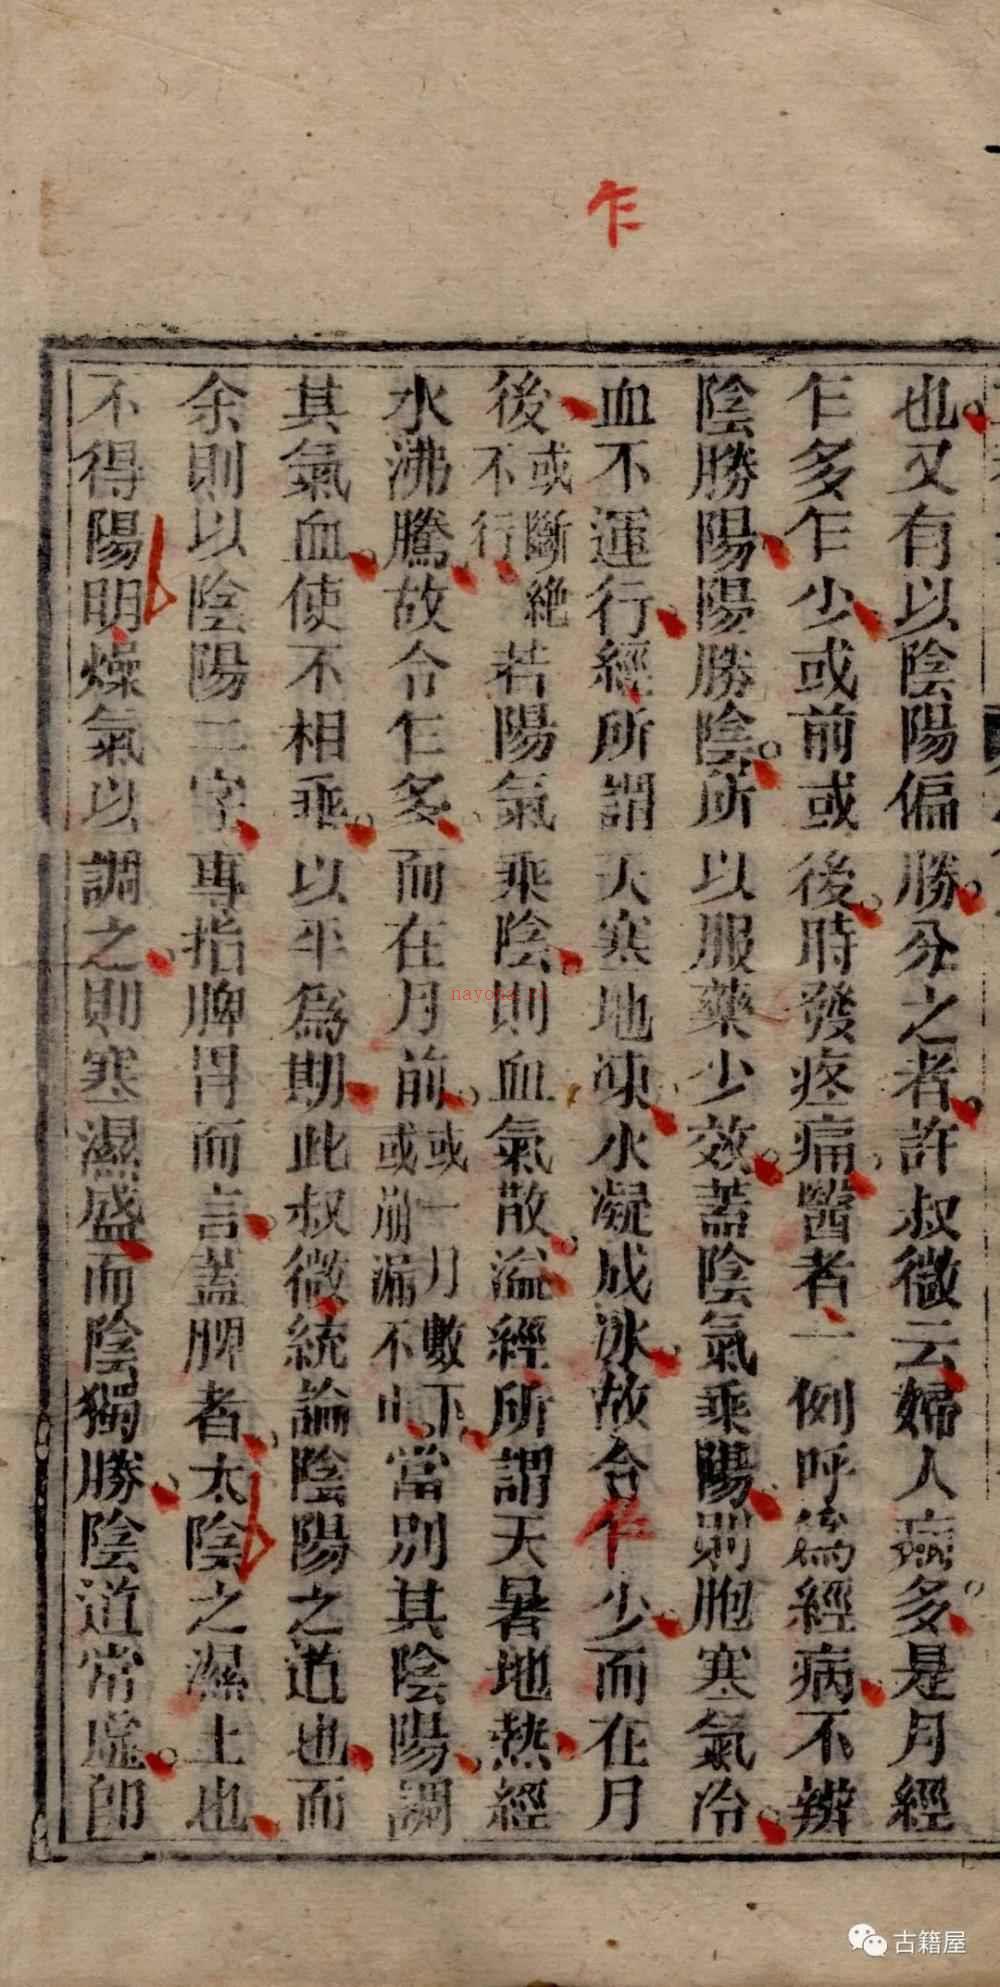 乍
也又有以陰陽偏勝分之者許叔微云婦人病多是月經
乍多乍少或前或後時發疼痛醫者一例呼爲經病不辨
陰勝陽陽勝陰所以服藥少效蓋陰氣乘陽則胞寒氣冷
血不運行經所謂天寒地凍水凝成冰故令乍少而在月
後或斷絶不行若陽氣乘陰則血氣散溢經所謂天暑地熱經
水沸騰故令乍多而在月前或一月數下或崩漏不止當別其陰陽調
其氣血使不相乘以平爲期此叔微統論陰陽之道也而
余則以陰陽二字專指脾胃而言蓋脾者太陰之濕土也
不得陽明燥氣以調之則寒濕盛而陰獨勝陰道常虛即
nayona.cn
古籍屋